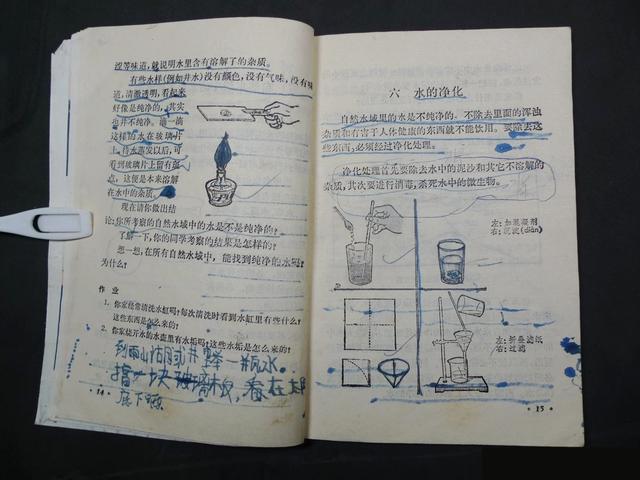 涩等味道,就说明水里含有溶解了的杂质。
有些水样(例如井水)没有颜色,没有气味,没有味
道,清澈透明,看起来
好像是纯净的,其实
也并不纯净。滴一滴
这样的水在玻璃片
上,待水蒸发以后,可
看到玻璃片上留有斑
点,这便是本来溶解
在水中的杂质。
现在请你做出结
论:你所考察的自然水域中的水是不是纯净的?
了解一下,你的同学考察的结果是怎样的?
想一想,在所有自然水域中,能找到纯净的水吗?
为什么?
作 业
1. 你家经常清洗水缸吗?每次清洗时看到水缸里有些什么?
这些东西是怎么来的?
2. 你家烧开水的水壶里有水垢吗?这些水垢是怎么来的?
一瓶水。
一块玻璃
看在太阳
底下晾
• 14 •
六 水的净化
自然水域里的水是不纯净的。不除去里面的浑浊
杂质和有害于人体健康的东西就不能饮用。要除去这
些东西,必须经过净化处理。
净化处理首先要除去水中的泥沙和其它不溶解的
杂质,其次要进行消毒,杀死水中的微生物。
左:加凝凝剂
右:沉淀(diàn)
左:折叠滤纸
右:过滤
• 15 •